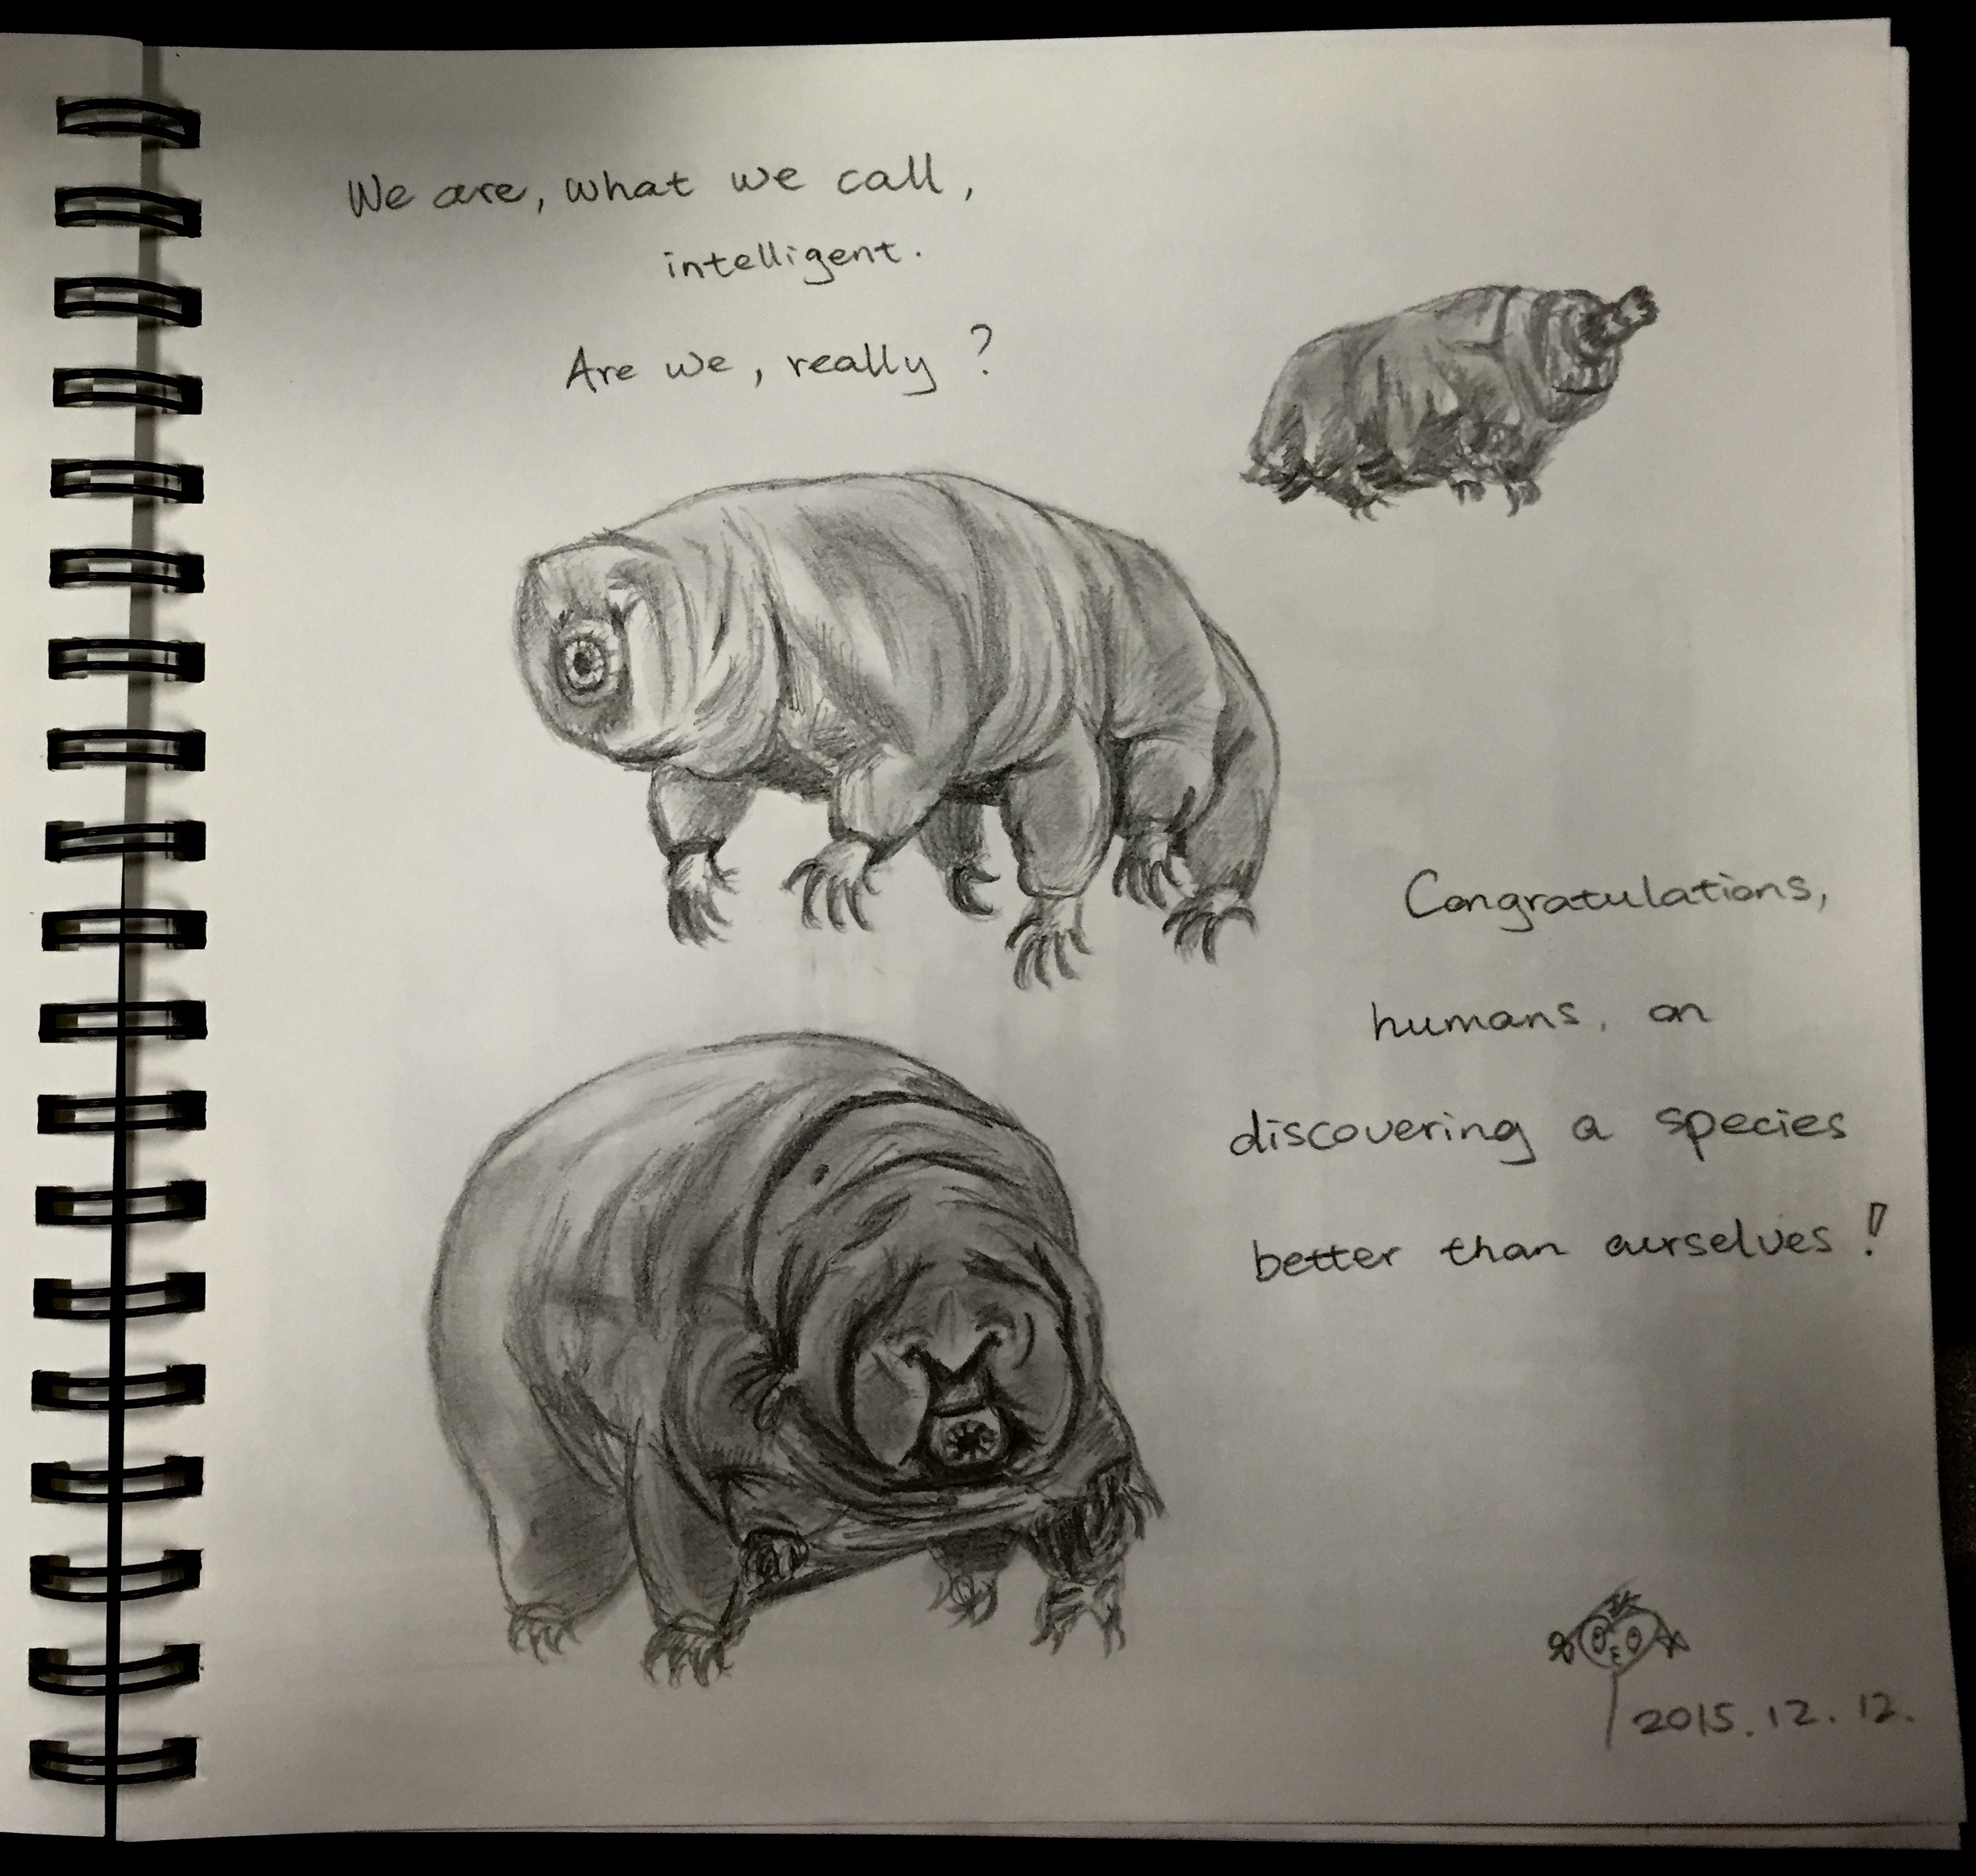 We are, what we call,
intelligent.
Are we, really?
Congratulations,
humans, on
discovering a species
better than ourselves!
2015.12.12.